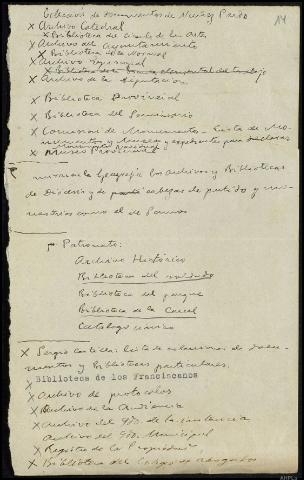 Colección de documentos de Núñez Pardo
14
X Archivo Catedral
X Biblioteca del Círculo de las Artes
X Archivo del Ayuntamiento
X Biblioteca de la Normal
X Archivo
X Biblioteca de la elemental del trabajo
X Archivo de la Diputación
X Biblioteca Provincial
X Biblioteca del Seminario
X Comision de Monumentos - Lista de Mo-
numentos y Museos y expediente para declarar
Monumentos Nacionales
X Museo Provincial
mirar en la Geografía los Archivos y Bibliotecas
de Diócesis y de cabezas de partido y mo-
nasterios como el de Samos
Patronato:
Archivo Histórico
Biblioteca del soldado
Biblioteca del parque
Biblioteca de la Carcel
Catálogo único
X Sergio lista de colecciones de docu-
mentos y Bibliotecas particulares.
X Biblioteca de los Franciscanos
X Archivo de protocolos
X Archivo de la Audiencia
X Archivo del de Instancia
Archivo del Municipal
X Registro de la Propiedad
X Biblioteca del Colegio de Abogados